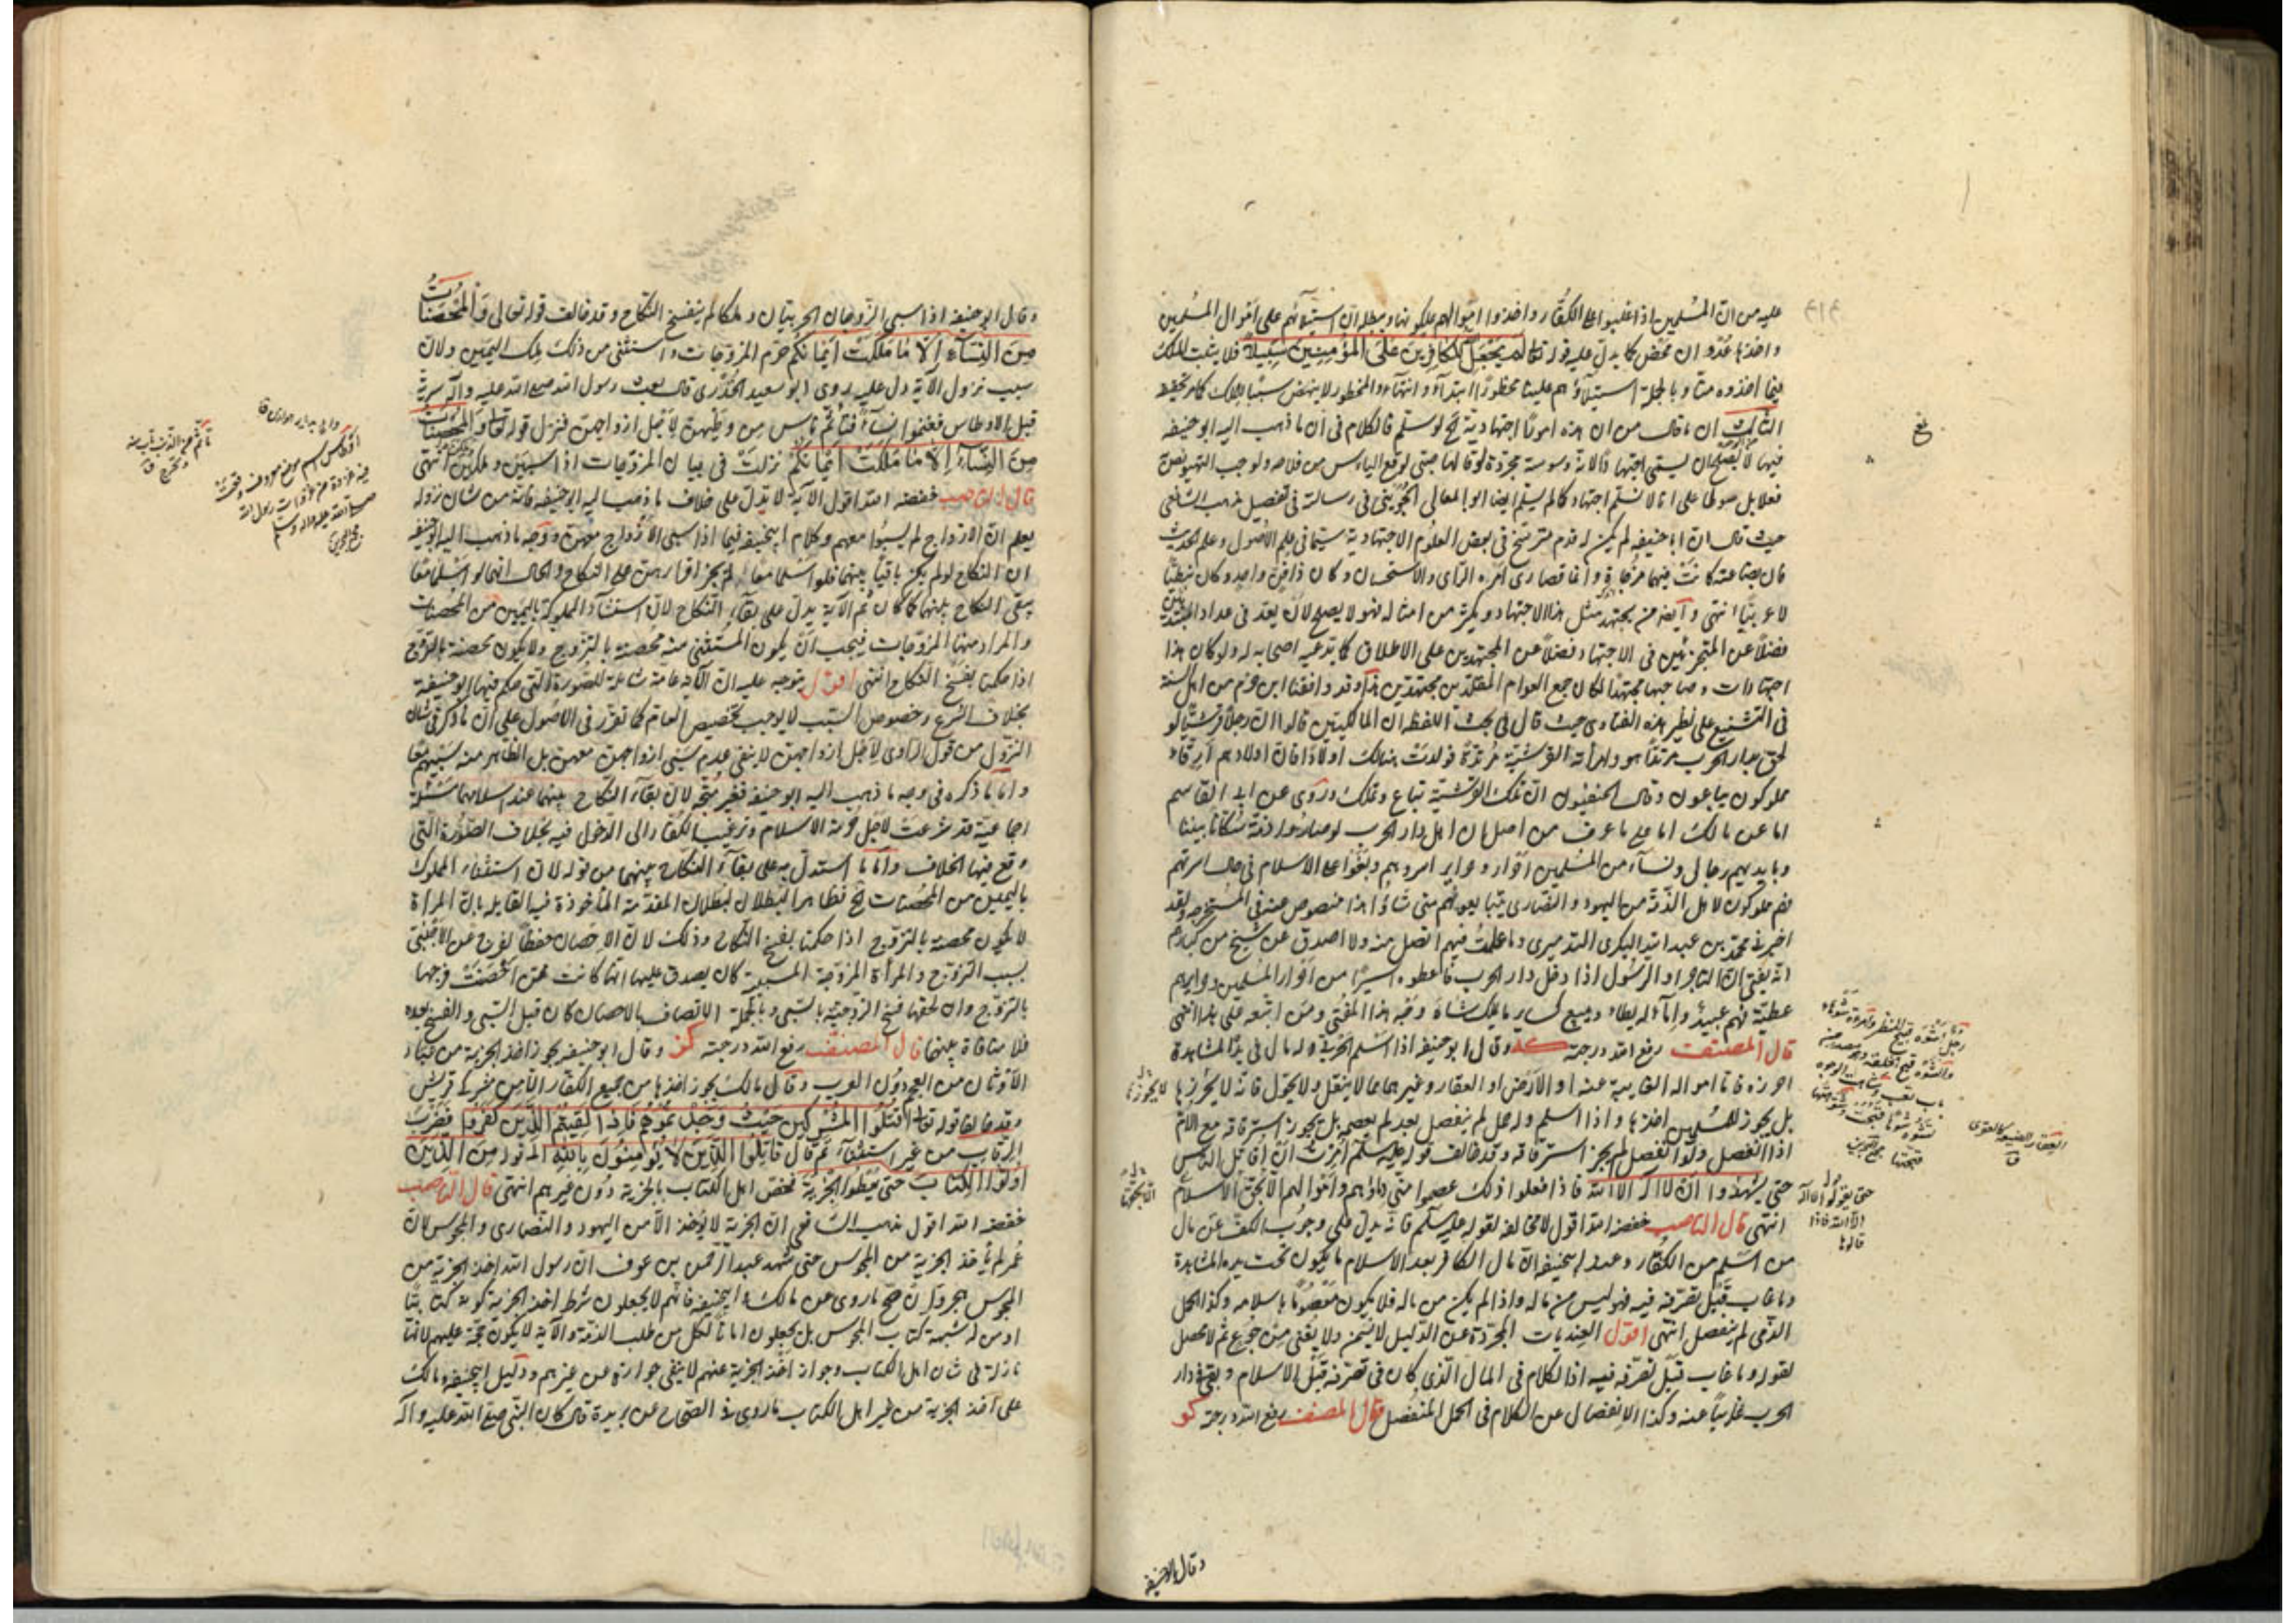 عليه من ان المسلمين اذا غلبوا على الكفار واخذوا اموالهم ملكونها ومثله ان استيلائهم على اموال المسلمين
واخذها عدوان محض كما يدل عليه قوله تعالى لن يجعل الله للكافرين على المؤمنين سبيلا فلا يثبت الملك
فيما اخذوه منا وبالجملة استيلاؤهم علينا محظورا ابتداء وانتهاء والمحظور لا ينهض سببا للملك كما مر تحقيقه
الثالث ان ما قاله من ان هذه امور اجتهادية الخ لو سلم فالكلام في ان ما ذهب اليه ابو حنيفة
فيها لا يصلح ان يسمى اجتهادا لانه وسوسة مجردة لو قالها صبي لوقع الياس من فلاحه ولوجب
على انا لا نسلم اجتهاده كما لم يسلم ايضا ابو المعالي الجويني في رسالته في تفضيل مذهب الشافعي
حيث قال ان ابا حنيفة لم يكن له قدم مترسخ في بعض العلوم الاجتهادية سيما في علم الاصول وعلم الحديث
فان بضاعته كانت فيها مزجاة وانما قصارى امره الراى والاستحسان وكان ذا فن واحد وكان نبطيا
لا عربيا انتهى وايضا من يجتهد مثل هذا الاجتهاد ويكثر من امثاله فهو لا يصلح لان يعد في عداد المبتدئين
فضلا عن المتجزئين في الاجتهاد فضلا عن المجتهدين على الاطلاق كما يدعيه اصحابه له ولو كان هذا
اجتهادات وصاحبها مجتهدا لكان جميع العوام المقلدين مجتهدين هذا وقد وافقنا ابن حزم من اهل السنة
في التشنيع على نظير هذه الفتاوى حيث قال في بحث اللفظ ان المالكيين قالوا ان رجلا قرشيا لو
لحق بدار الحرب مرتدا هو وامراته القرشية مرتدة فولدت هنالك اولادا فان اولادهم ارقاء
مملوكون يباعون وقال الحنفيون ان تلك القرشية تباع وتملك وروى عن ابن القاسم
اما عن مالك اما على ما عرف من اصله ان اهل دار الحرب لو صاروا ذمة سكانا بيننا
وبايديهم رجال ونساء من المسلمين احرار وحراير اسروهم وبقوا على الاسلام في حال اسرتهم
فهم مملوكون لاهل الذمة من اليهود والنصارى يتبايعونهم متى شاؤا هذا منصوص عنه في المستخرجة ولقد
اخبرني محمد بن عبد الله البكرى التدميرى وما علمت فيهم افضل منه ولا اصدق عن شيخ من كبارهم
انه يفتى ان التاجر او الرسول اذا دخل دار الحرب فاعطوه اسيرا من احرار المسلمين وحرايرهم
عطية فهم عبيد واماء له يطاء ويبيع كساير ما يملك شاه وجه هذا المفتى ومن اتبعه على هذا انتهى
قال المصنف رفع الله درجته كه وقال ابو حنيفة اذا اسلم الحربى وله مال في يد المشاهدة
احرزه فاما امواله الغايبة عنه او الارض او العقار وغيرهما مما لا ينقل ولا يحول فانه لا يحرزها
بل يجوز للمسلمين اخذها واذا اسلم وله حمل لم ينفصل بعد لم يعصم بل يجوز استرقاقه مع الام
اذا انفصل ولو انفصل لم يجز استرقاقه وقد خالف قوله عليه سلم امرت ان اقاتل الناس
حتى يشهدوا ان لا اله الا الله فاذا فعلوا ذلك عصموا مني دماؤهم واموالهم الا بحق الاسلام
انتهى قال الناصب خفضه الله اقول لا مخالفة لقوله عليه سلم فانه يدل على وجوب الكف عن مال
من اسلم من الكفار وعند ابى حنيفة ان مال الكافر بعد الاسلام ما يكون تحت يده المشاهدة
وما غاب قبل تصرفه فيه فهو ليس من ماله واذا لم يكن من ماله فلا يكون معصوما باسلامه وكذا الحمل
الذى لم ينفصل انتهى اقول العنديات المجردة عن الدليل لا يسمن ولا يغنى من جوع ثم لا محصل
لقوله وما غاب قبل تصرفه فيه اذ الكلام في المال الذى كان في تصرفه قبل الاسلام وبقى في دار
الحرب غايبا عنه وكذا الانفصال عن الكلام في الحمل المنفصل قال المصنف رفع الله درجته كو
حتى يقولوا لا اله
الا الله فاذا
قالوها
وقال ابو حنيفة
وقال ابو حنيفة اذا سبى الزوجان الحربيان وملكا لم ينفسخ النكاح وقد خالف قوله تعالى والمحصنات
من النساء الا ما ملكت ايمانكم حرم المزوجات واستثنى من ذلك ملك اليمين ولان
سبب نزول الآية دل عليه روى ابو سعيد الخدرى قال بعث رسول الله صلى الله عليه وآله سرية
قبل الاوطاس فغنموا نساء فتأثم ناس من وطيهن لاجل ازواجهن فنزل قوله تعالى والمحصنات
من النساء الا ما ملكت ايمانكم نزلت في بيان المزوجات اذا سبين وملكن انتهى
قال الناصب خفضه الله اقول الآية لا تدل على خلاف ما ذهب اليه ابو حنيفة فانه من شان نزوله
يعلم ان الازواج لم يسبوا معهم وكلام ابيحنيفة فيما اذا سبى الازواج معهن ووجه ما ذهب اليه ابو حنيفة
ان النكاح لو لم يكن باقيا بينهما فلو اسلما معا لم يجز اقرارهن على النكاح والحال انهما لو اسلما معا
يبقى النكاح بينهما كما كان ثم الآية يدل على بقاء النكاح لان استثناء المملوكة باليمين من المحصنات
والمراد منها المزوجات فيجب ان يكون المستثنى منه محصنة بالتزوج ولا يكون محصنة بالتزوج
اذا حكمنا بفسخ النكاح انتهى اقول يتوجه عليه ان الآية عامة شاملة للصورة التي حكم فيها ابو حنيفة
بخلاف الشرع وخصوص السبب لا يوجب تخصيص العام كما تقرر في الاصول على ان ما ذكر في شان
النزول من قول الراوى لاجل ازواجهن لا ينفى عدم سبى ازواجهن معهن بل الظاهر منه سبيهم معا
واما ما ذكره في وجه ما ذهب اليه ابو حنيفة فغير متجه لان بقاء النكاح بينهما عند اسلامهما مسئلة
اجماعية قد شرعت لاجل حرمة الاسلام وترغيب الكفار الى الدخول فيه بخلاف الصورة التي
وقع فيها الخلاف واما ما استدل به على بقاء النكاح بينهما من قوله لان استثناء المملوك
باليمين من المحصنات الخ فظاهر البطلان لبطلان المقدمة المأخوذة فيه القايلة بان المراة
لا يكون محصنة بالتزوج اذا حكمنا بفسخ النكاح وذلك لان الاحصان حفظ الفرج عن الاجنبى
بسبب التزوج والمرأة المزوجة المسبية كان يصدق عليها انها كانت ممن احصنت فرجها
بالتزوج وان لحقها فسخ الزوجية بالسبى وبالجملة الاتصاف بالاحصان كان قبل السبى والفسخ بعده
فلا منافاة بينهما قال المصنف رفع الله درجته كز وقال ابو حنيفة يجوز اخذ الجزية من عباد
الاوثان من العجم دون العرب وقال مالك يجوز اخذها من جميع الكفار الا من مشركى قريش
وقد خالفا قوله تعالى اقتلوا المشركين حيث وجدتموهم فاذا لقيتم الذين كفروا فضرب
الرقاب من غير استثناء ثم قال قاتلوا الذين لا يؤمنون بالله الى قوله من الذين
اوتوا الكتاب حتى يعطوا الجزية فخص اهل الكتاب بالجزية دون غيرهم انتهى قال الناصب
خفضه الله اقول مذهب الشافعى ان الجزية لا يؤخذ الا من اليهود والنصارى والمجوس لان
عمر لم يأخذ الجزية من المجوس حتى شهد عبد الرحمن بن عوف ان رسول الله اخذ الجزية من
المجوس هجر وان صح ما روى عن مالك وابيحنيفة فانهم لا يجعلون شرط اخذ الجزية كونه كتابيا
او من له شبهة كتاب المجوس بل يجعلون امانا لكل من طلب الذمة والآية لا يكون حجة عليهم لانها
نازلة في شان اهل الكتاب وجواز اخذ الجزية عنهم لا ينفى جوازه عن غيرهم ودليل ابيحنيفة ومالك
على اخذ الجزية من غير اهل الكتاب ما روى في الصحاح عن بريدة قال كان النبي صلى الله عليه وآله